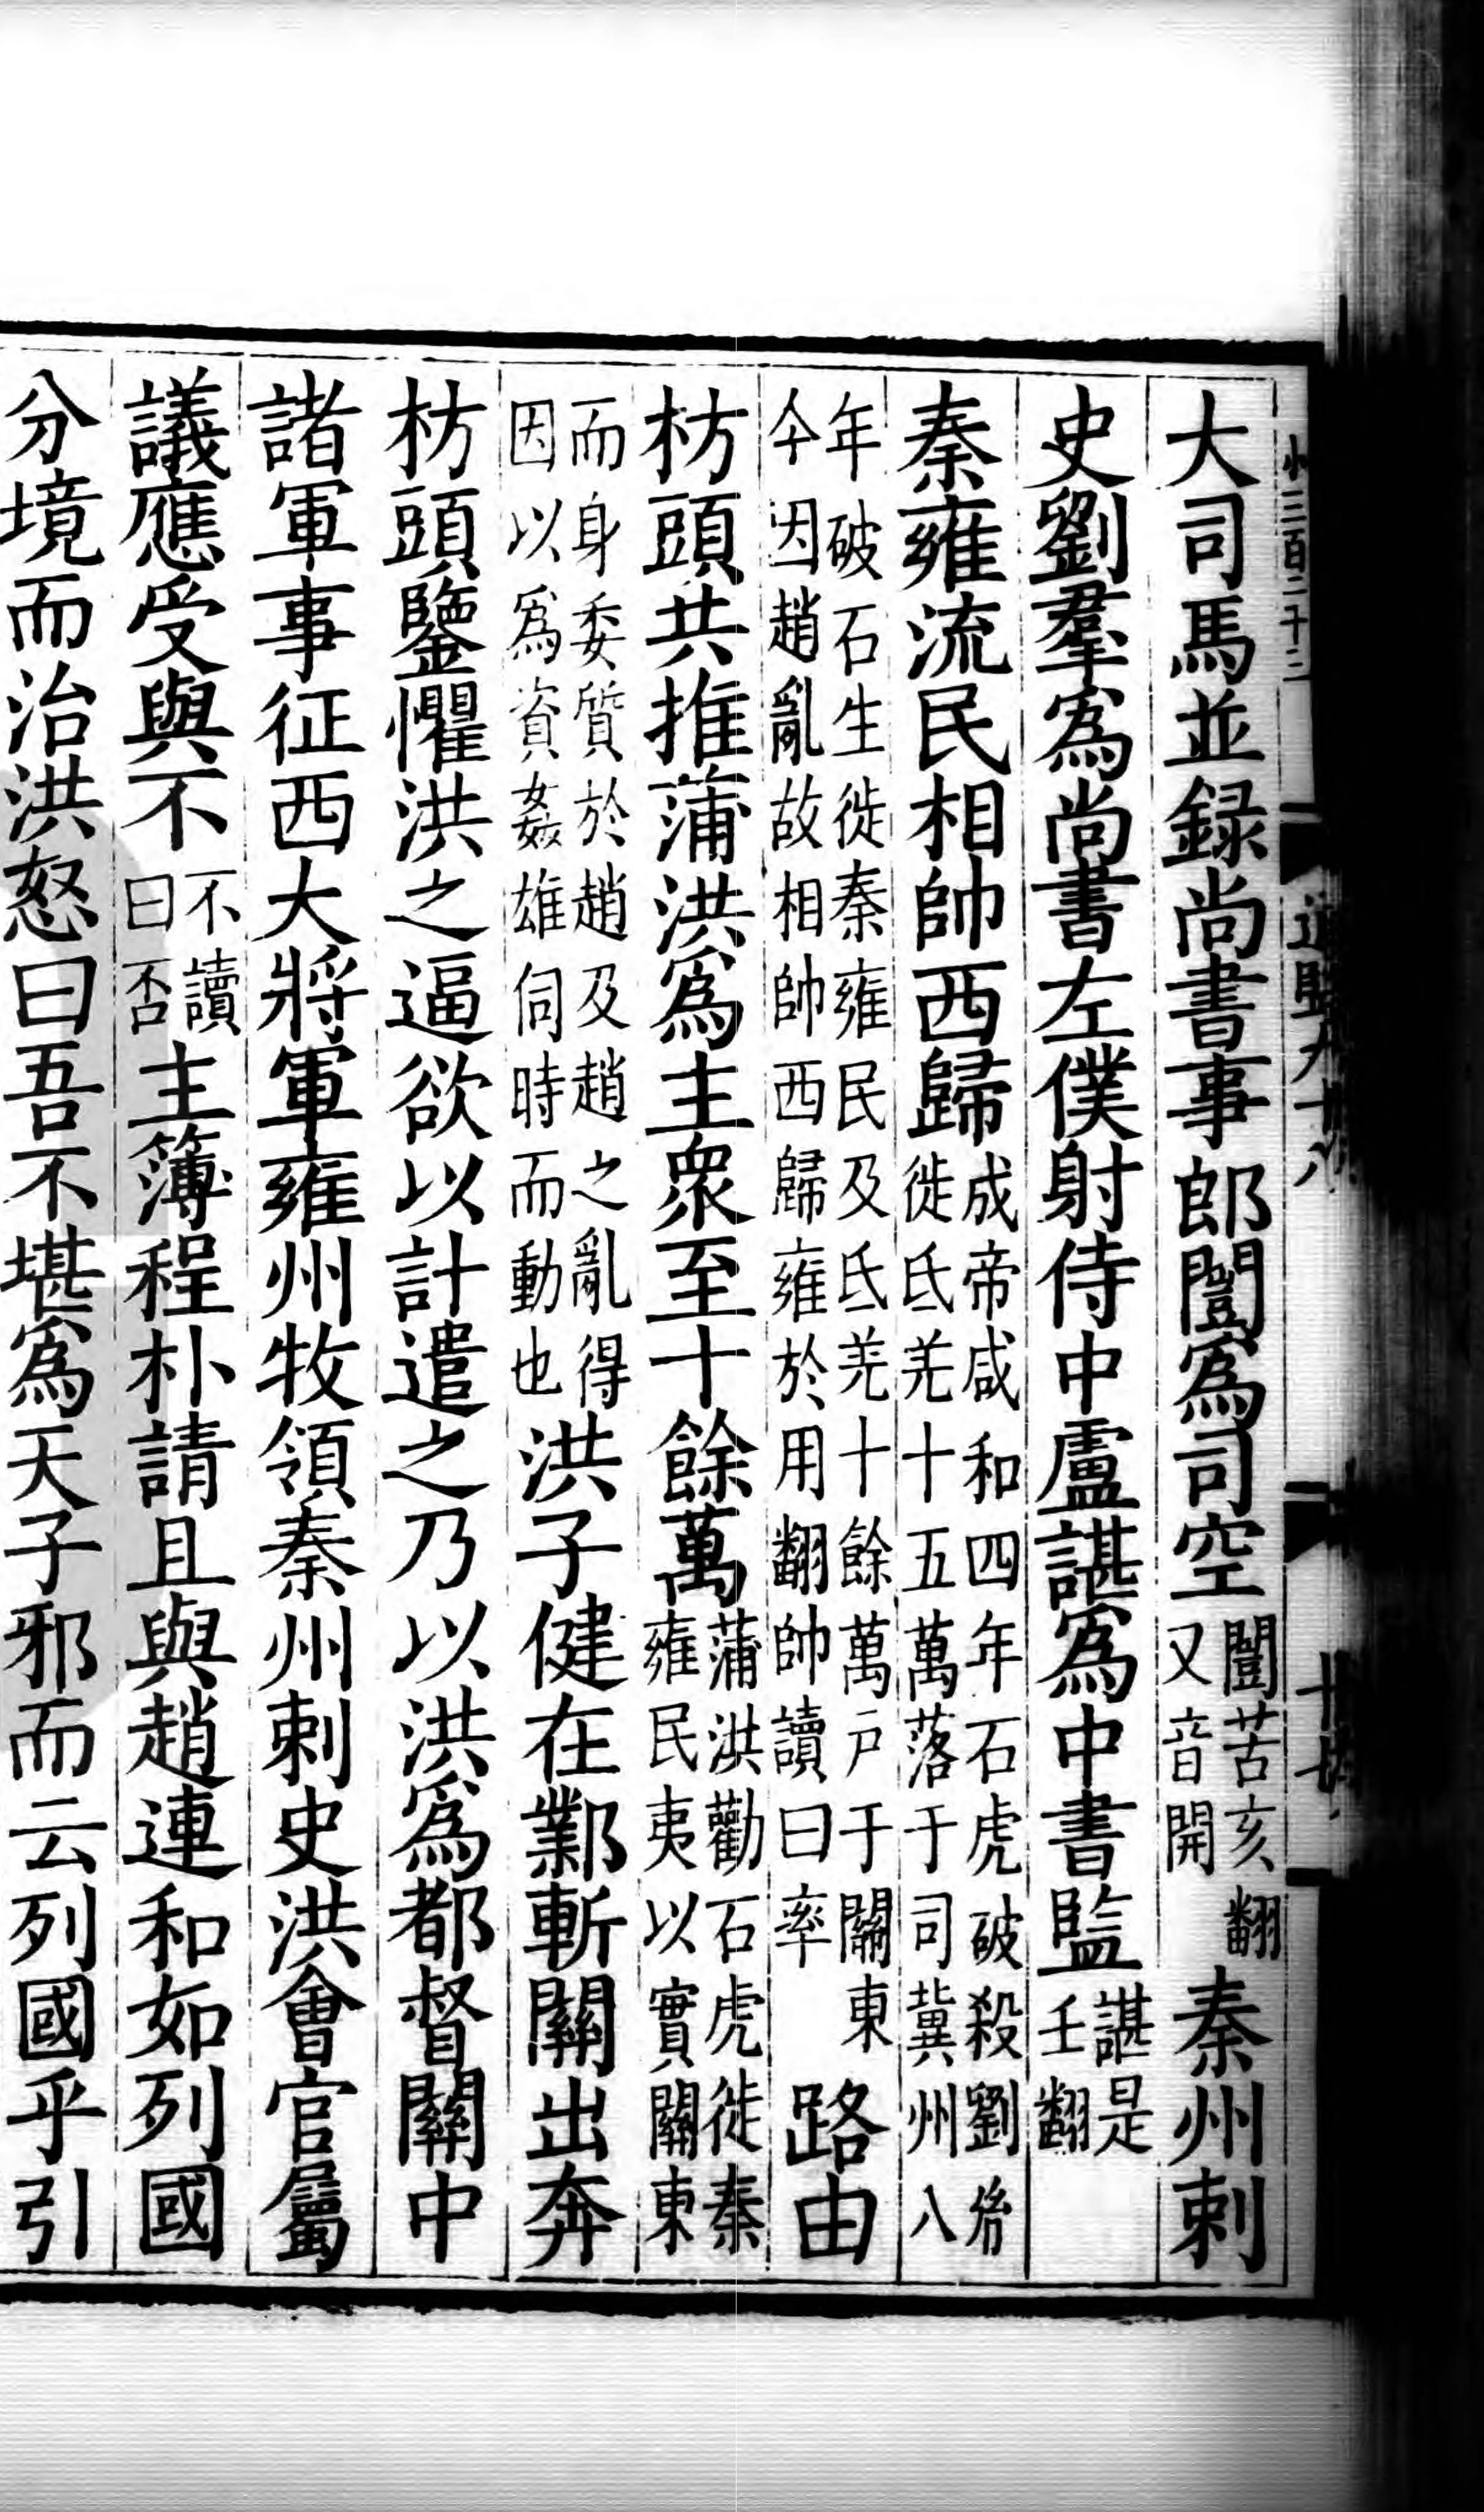 大司馬並録尚書事郎闓爲司空闓苦亥翻又音開秦州刺
史劉羣爲尚書左僕射侍中盧諶爲中書監諶是壬翻
秦雍流民相帥西歸成帝咸和四年石虎破殺劉胤徙氐羌十五萬落于司冀州八
年破石生徙秦雍民及氐羌十餘萬戶于關東今因趙亂故相帥西歸雍於用翻帥讀曰率路由
枋頭共推蒲洪爲主衆至十餘萬蒲洪勸石虎徙秦雍民夷以實關東
而身委質於趙及趙之亂得因以爲資姦雄伺時而動也洪子健在鄴斬關出奔
枋頭鑒懼洪之逼欲以計遣之乃以洪爲都督關中
諸軍事征西大將軍雍州牧領秦州刺史洪會官屬
議應受與不不讀曰否主簿程朴請且與趙連和如列國
分境而治洪怒曰吾不堪爲天子邪而云列國乎引